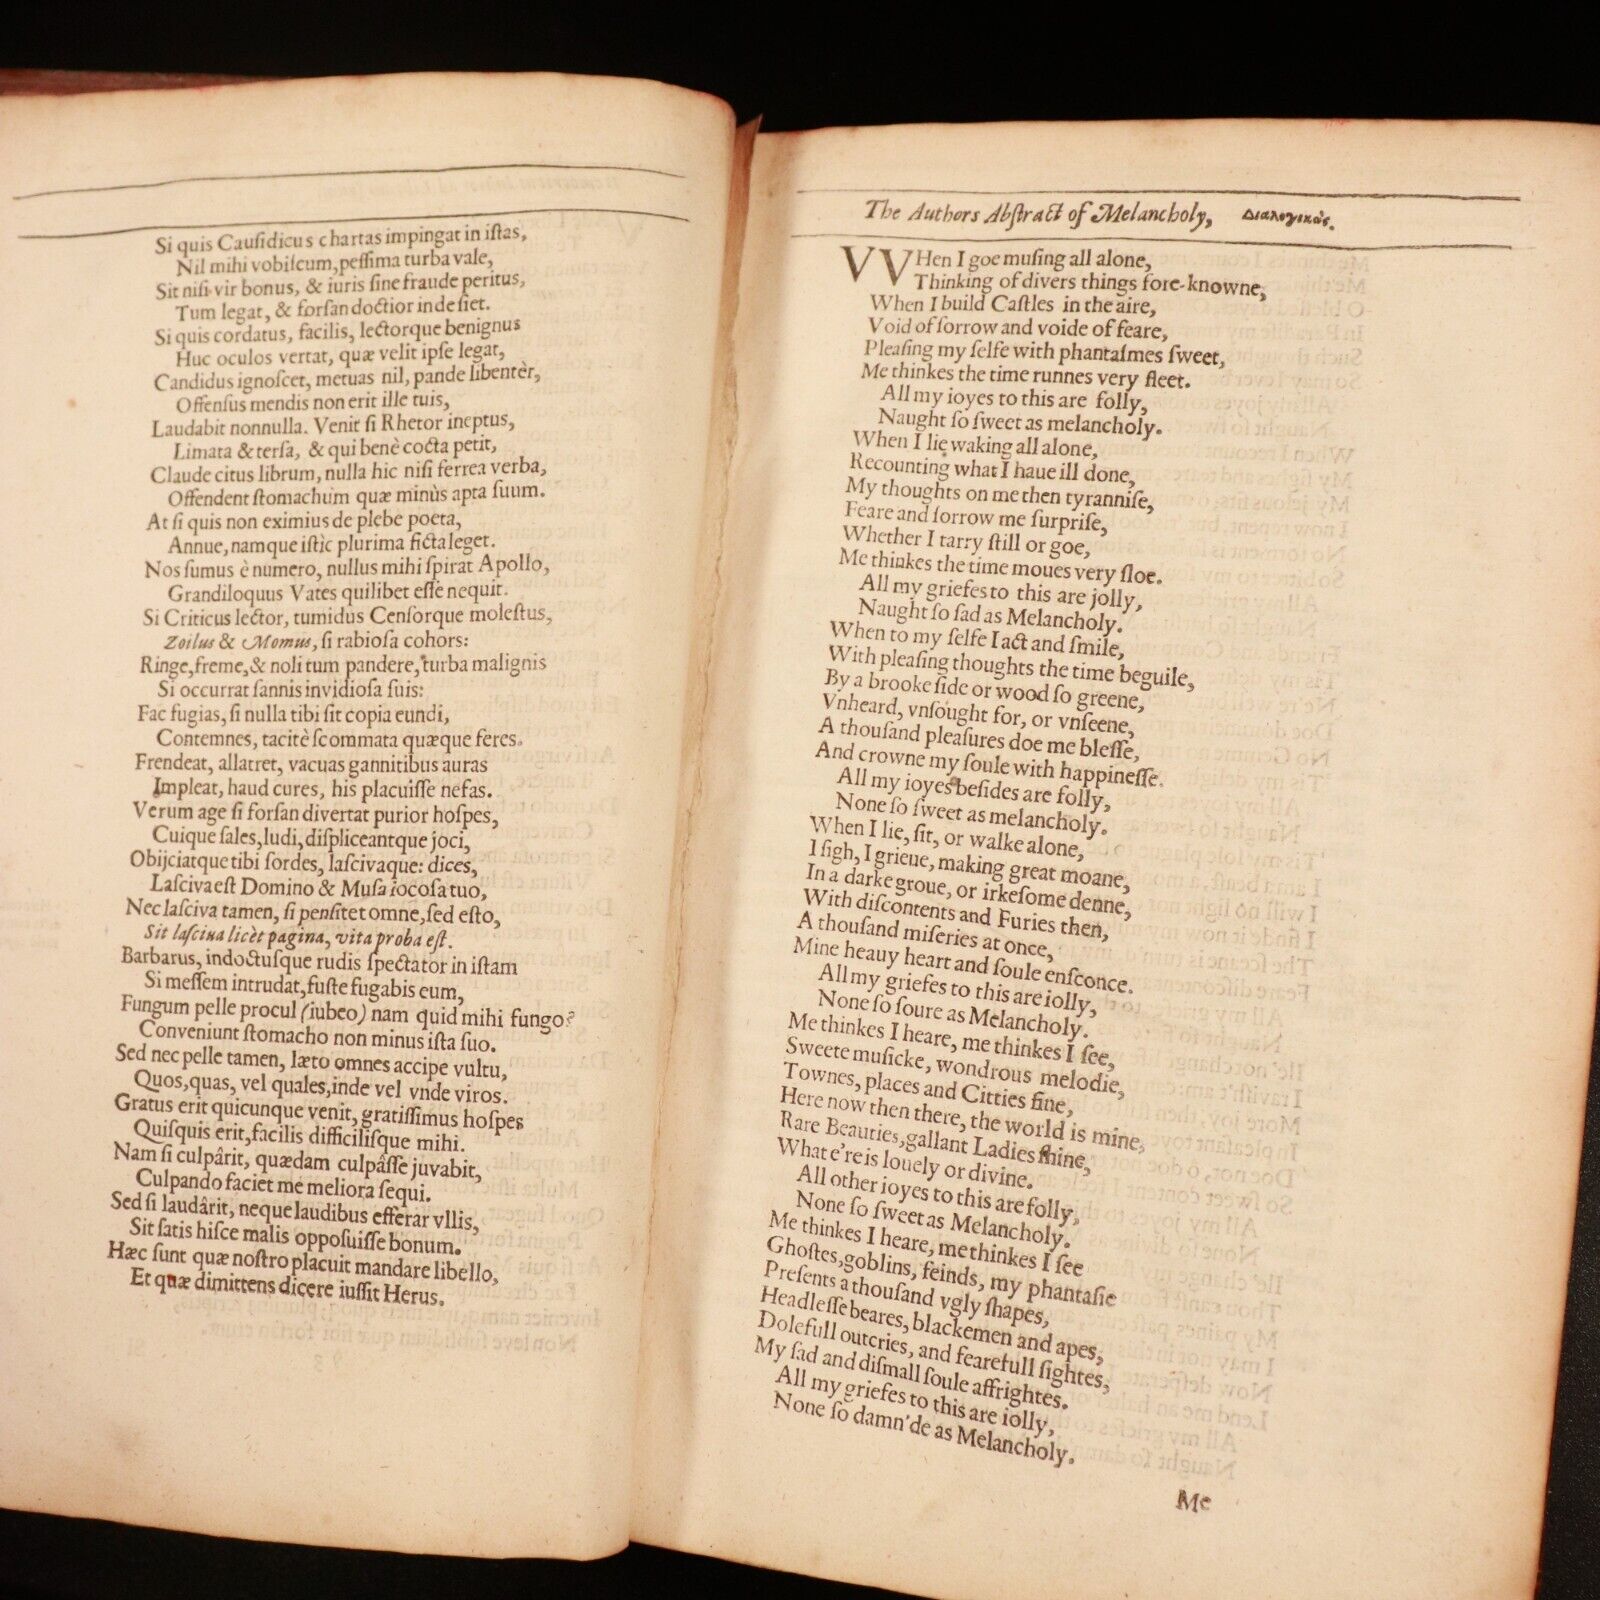 Si quis Cauſidicus chartas impingat in iſtas,
Nil mihi vobiſcum, peſſima turba vale,
Sit niſi vir bonus, & iuris ſine fraude peritus,
Tum legat, & forſan doctior inde ſiet.
Si quis cordatus, facilis, lectorque benignus
Huc oculos vertat, quæ velit ipſe legat,
Candidus ignoſcet, metuas nil, pande libentèr,
Offenſus mendis non erit ille tuis,
Laudabit nonnulla. Venit ſi Rhetor ineptus,
Limata & terſa, & qui benè cocta petit,
Claude citus librum, nulla hic niſi ferrea verba,
Offendent ſtomachum quæ minùs apta ſuum.
At ſi quis non eximius de plebe poeta,
Annue, namque iſtic plurima ficta leget.
Nos ſumus è numero, nullus mihi ſpirat Apollo,
Grandiloquus Vates quilibet eſſe nequit.
Si Criticus lector, tumidus Cenſorque moleſtus,
Zoilus & Momus, ſi rabioſa cohors:
Ringe, freme, & noli tum pandere, turba malignis
Si occurrat ſannis invidioſa ſuis:
Fac fugias, ſi nulla tibi ſit copia eundi,
Contemnes, tacitè ſcommata quæque feres.
Frendeat, allatret, vacuas gannitibus auras
Impleat, haud cures, his placuiſſe nefas.
Verum age ſi forſan divertat purior hoſpes,
Cuique ſales, ludi, diſpliceantque joci,
Obijciatque tibi ſordes, laſcivaque: dices,
Laſciva eſt Domino & Muſa iocoſa tuo,
Nec laſciva tamen, ſi penſitet omne, ſed eſto,
Sit laſciua licèt pagina, vita proba eſt.
Barbarus, indoctuſque rudis ſpectator in iſtam
Si meſſem intrudat, fuſte fugabis eum,
Fungum pelle procul (iubeo) nam quid mihi fungo?
Conveniunt ſtomacho non minus iſta ſuo.
Sed nec pelle tamen, læto omnes accipe vultu,
Quos, quas, vel quales, inde vel vnde viros.
Gratus erit quicunque venit, gratiſſimus hoſpes
Quiſquis erit, facilis difficiliſque mihi.
Nam ſi culpârit, quædam culpâſſe juvabit,
Culpando faciet me meliora ſequi.
Sed ſi laudârit, neque laudibus efferar vllis,
Sit ſatis hiſce malis oppoſuiſſe bonum.
Hæc ſunt quæ noſtro placuit mandare libello,
Et quæ dimittens dicere iuſſit Herus.
The Authors Abſtract of Melancholy, Διαλογικῶς.
VVHen I goe muſing all alone,
Thinking of divers things fore-knowne,
When I build Caſtles in the aire,
Void of ſorrow and voide of feare,
Pleaſing my ſelfe with phantaſmes ſweet,
Me thinkes the time runnes very fleet.
All my ioyes to this are folly,
Naught ſo ſweet as melancholy.
When I lie waking all alone,
Recounting what I haue ill done,
My thoughts on me then tyranniſe,
Feare and ſorrow me ſurpriſe,
Whether I tarry ſtill or goe,
Me thinkes the time moues very ſloe.
All my griefes to this are jolly,
Naught ſo ſad as Melancholy.
When to my ſelfe I act and ſmile,
With pleaſing thoughts the time beguile,
By a brooke ſide or wood ſo greene,
Vnheard, vnſought for, or vnſeene,
A thouſand pleaſures doe me bleſſe,
And crowne my ſoule with happineſſe.
All my ioyes beſides are folly,
None ſo ſweet as melancholy.
When I lie, ſit, or walke alone,
I ſigh, I grieue, making great moane,
In a darke groue, or irkeſome denne,
With diſcontents and Furies then,
A thouſand miſeries at once,
Mine heauy heart and ſoule enſconce.
All my griefes to this are iolly,
None ſo ſoure as Melancholy.
Me thinkes I heare, me thinkes I ſee,
Sweete muſicke, wondrous melodie,
Townes, places and Citties fine,
Here now then there, the world is mine,
Rare Beauties, gallant Ladies ſhine,
What e're is louely or divine.
All other ioyes to this are folly,
None ſo ſweet as Melancholy.
Me thinkes I heare, me thinkes I ſee
Ghoſtes, goblins, feinds, my phantaſie
Preſents a thouſand vgly ſhapes,
Headleſſe beares, blackemen and apes,
Dolefull outcries, and fearefull ſightes,
My ſad and diſmall ſoule affrightes.
All my griefes to this are iolly,
None ſo damn'de as Melancholy.
Me